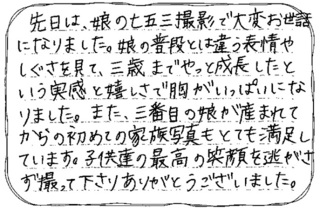 先日は、娘の七五三撮影で大変お世話
になりました。娘の普段とは違う表情や
しぐさを見て、三歳までやっと成長したと
いう実感と嬉しさで胸がいっぱいにな
りました。また、三番目の娘が産まれて
からの初めての家族写真もとても満足し
ています。子供達の最高の笑顔を逃がさ
ず撮って下さりありがとうございました。